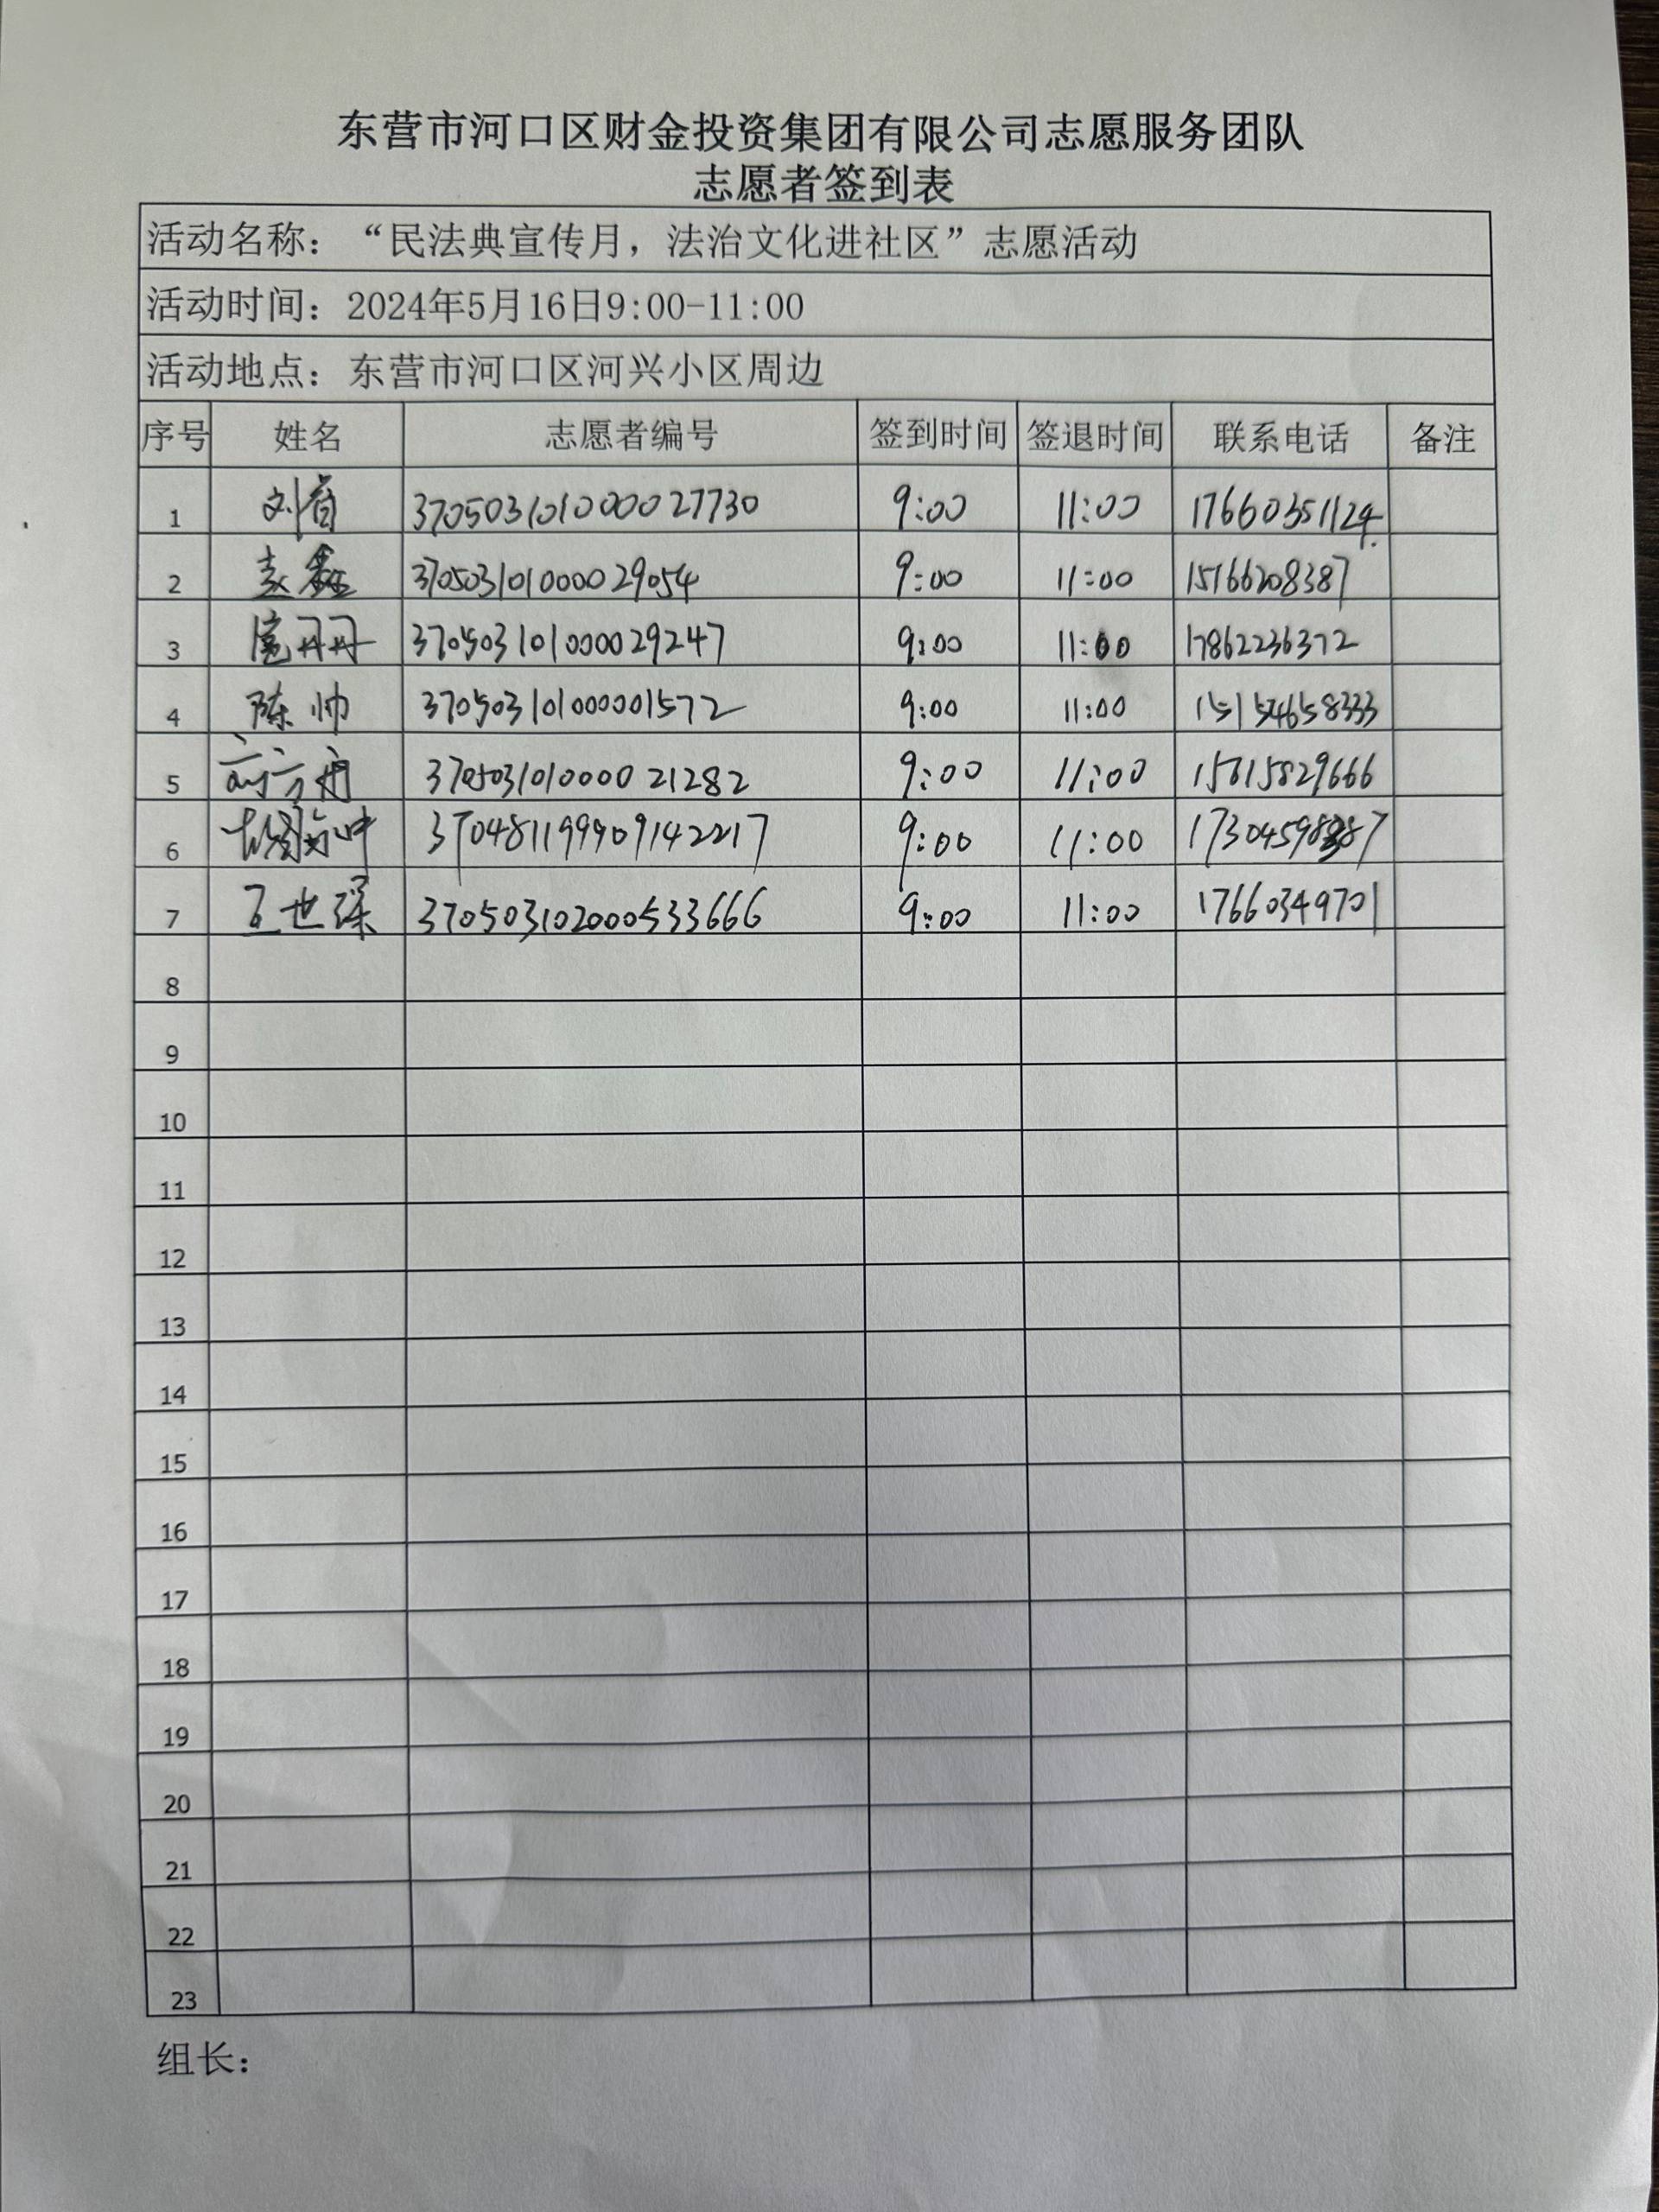 东营市河口区财金投资集团有限公司志愿服务团队
志愿者签到表
活动名称：“民法典宣传月，法治文化进社区”志愿活动
活动时间：2024年5月16日9:00-11:00
活动地点：东营市河口区河兴小区周边
序号 姓名 志愿者编号 签到时间 签退时间 联系电话 备注
1 370503101000027730 9:00 11:00 17660351124
2 赵鑫 370503101000029054 9:00 11:00 15166208387
3 扈丹丹 370503101000029247 9:00 11:00 17862236372
4 陈帅 370503101000001572 9:00 11:00
5 高方舟 370503101000021282 9:00 11:00 15615829666
6 370481199909142217 9:00 11:00
7 王世琛 370503102000533666 9:00 11:00 17660349701
8
9
10
11
12
13
14
15
16
17
18
19
20
21
22
23
组长：